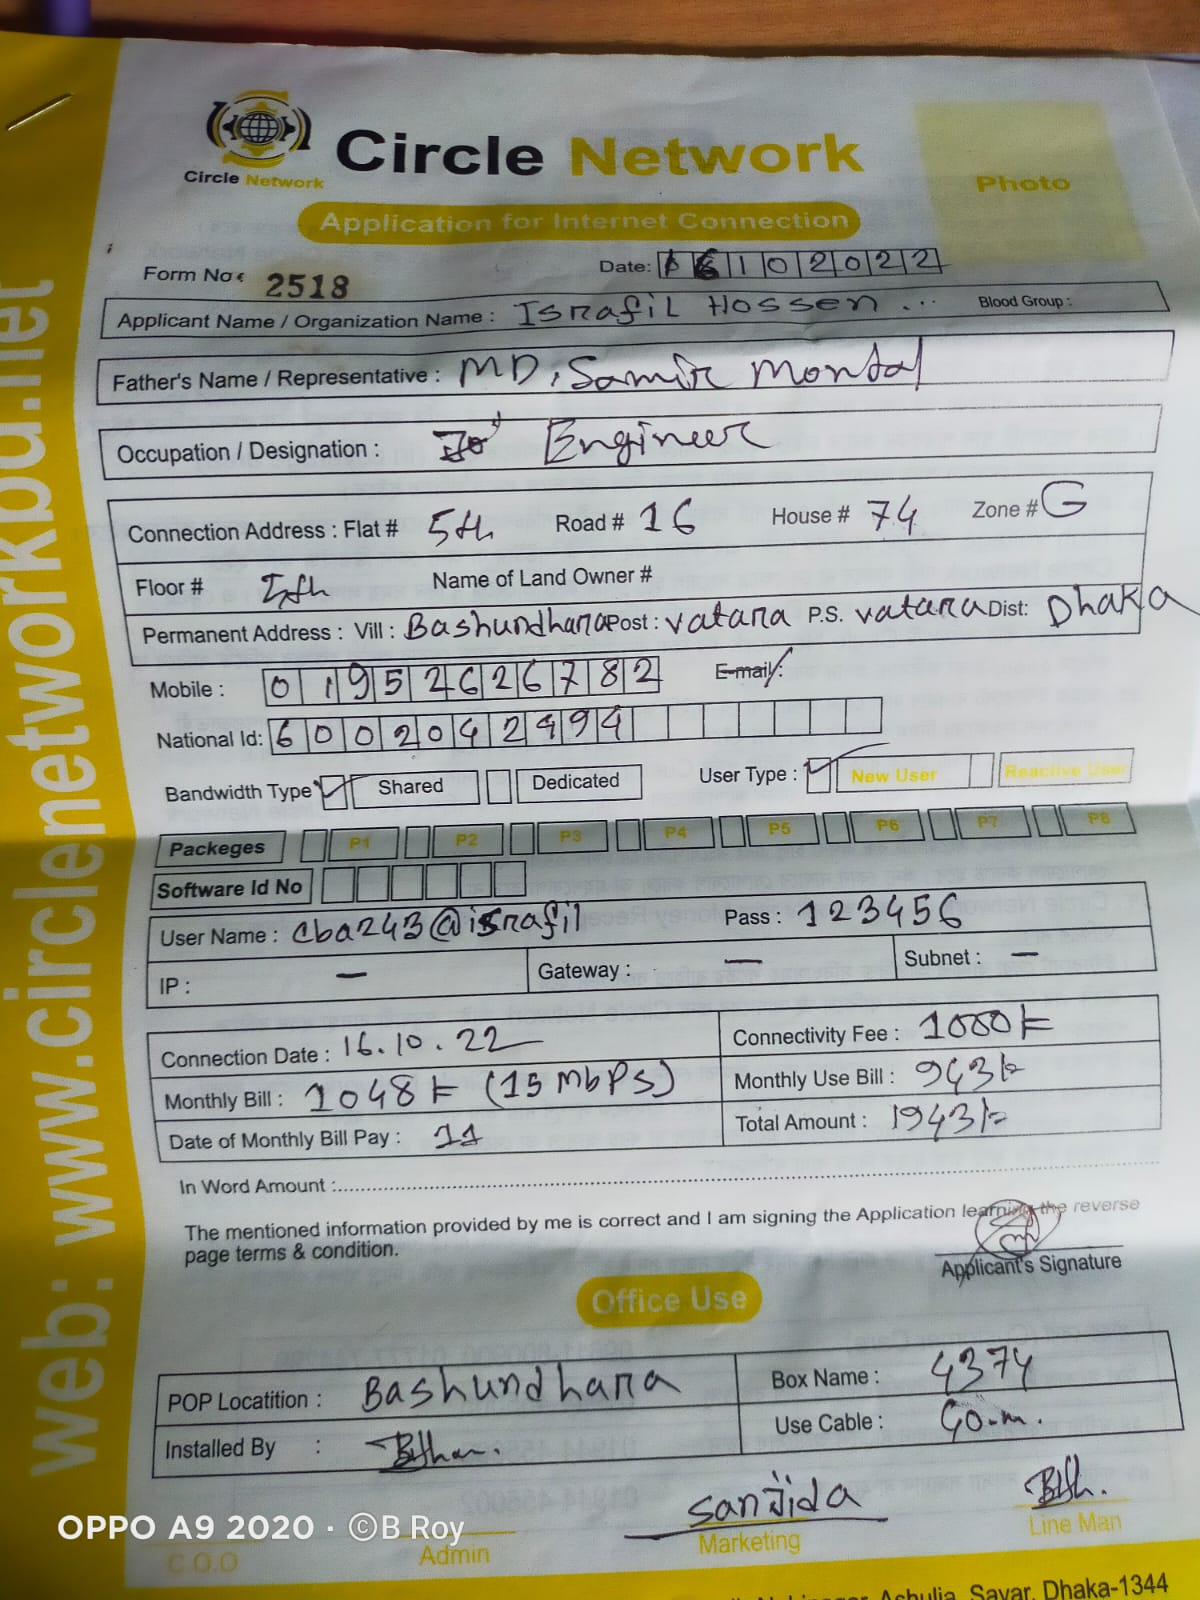 Circle Network
Circle Network
Photo
Application for Internet Connection
Form No: 2518
Date: 16102022
Applicant Name / Organization Name : Israfil Hossen ... Blood Group :
Father's Name / Representative : MD. Samir Mondal
Occupation / Designation : Engineer
Connection Address : Flat # 5th Road # 16 House # 74 Zone # G
Floor # Name of Land Owner #
Permanent Address : Vill : Bashundhara Post : vatara P.S. vatara Dist: Dhaka
Mobile : 01952626782 E-mail :
National Id: 6002042994
Bandwidth Type Shared Dedicated User Type : New User Reactive User
Packeges P1 P2 P3 P4 P5 P6 P7 P8
Software Id No
User Name : cba243@israfil Pass : 123456
IP : — Gateway : — Subnet : —
Connection Date : 16.10.22 Connectivity Fee : 1000/=
Monthly Bill : 1048/= (15 Mbps) Monthly Use Bill : 943/=
Date of Monthly Bill Pay : 11 Total Amount : 1943/=
In Word Amount :
The mentioned information provided by me is correct and I am signing the Application learning the reverse
page terms & condition.
Applicant's Signature
Office Use
POP Locatition : Bashundhara Box Name : 4374
Installed By : Use Cable : 40.m.
sanjida
C.O.O Admin Marketing Line Man
web: www.circlenetworkbd.net
OPPO A9 2020 · ©B Roy
Ashulia, Savar, Dhaka-1344